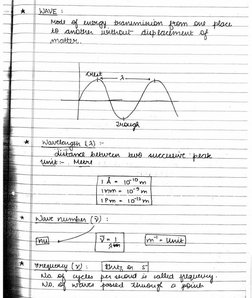 * WAVE :
Mode of energy transmission from one place
to another without displacement of
matter.
Crest
λ
Trough
* Wavelength (λ) :-
distance between two successive peak
Unit :- Metre
1 Å = 10⁻¹⁰ m
1 nm = 10⁻⁹ m
1 Pm = 10⁻¹² m
* Wave number (ν̅) :
nu
ν̅ = 1/λ
m⁻¹ = Unit
* Frequency (ν) :
No. of cycles per second is called frequency.
No. of waves passed through a point